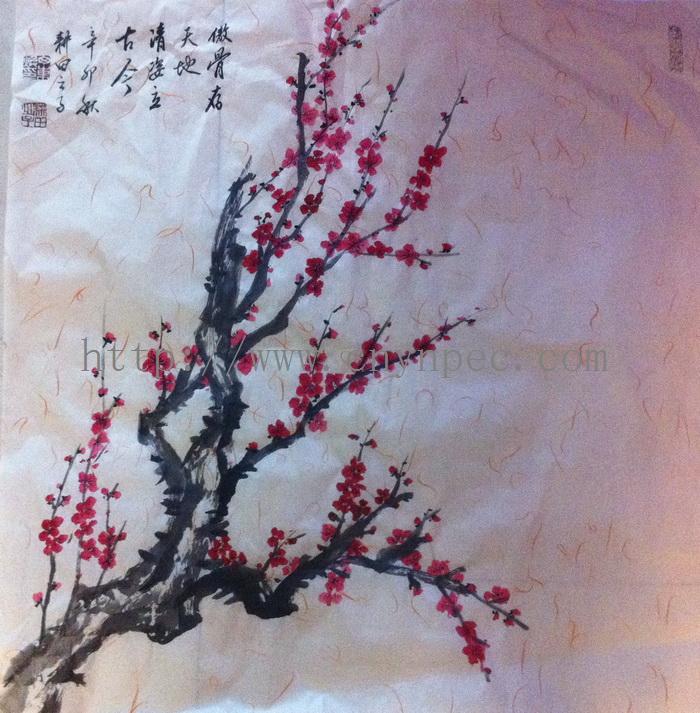 傲骨存
天地
清姿立
古今
辛卯秋
耕田之子
http://www.snynpec.com